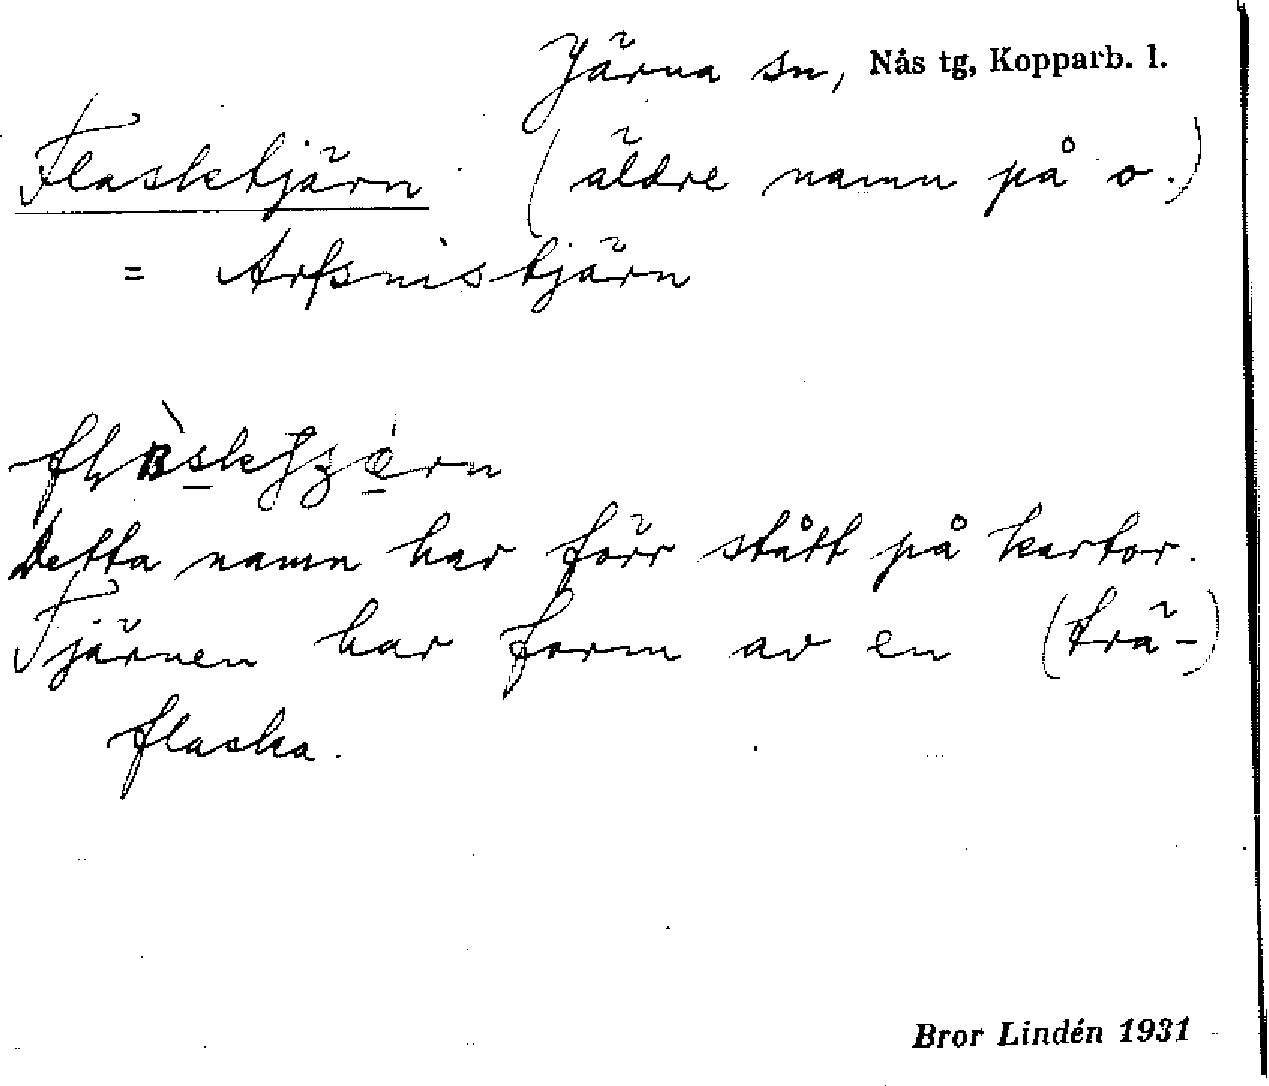 Järna sn, Nås tg, Kopparb. l.
Flasktjärn (äldre namn på o.)
= Arfsnistjärn
Detta namn har förr stått på kartor.
Tjärnen har form av en (trä-)
flaska.
Bror Lindén 1931